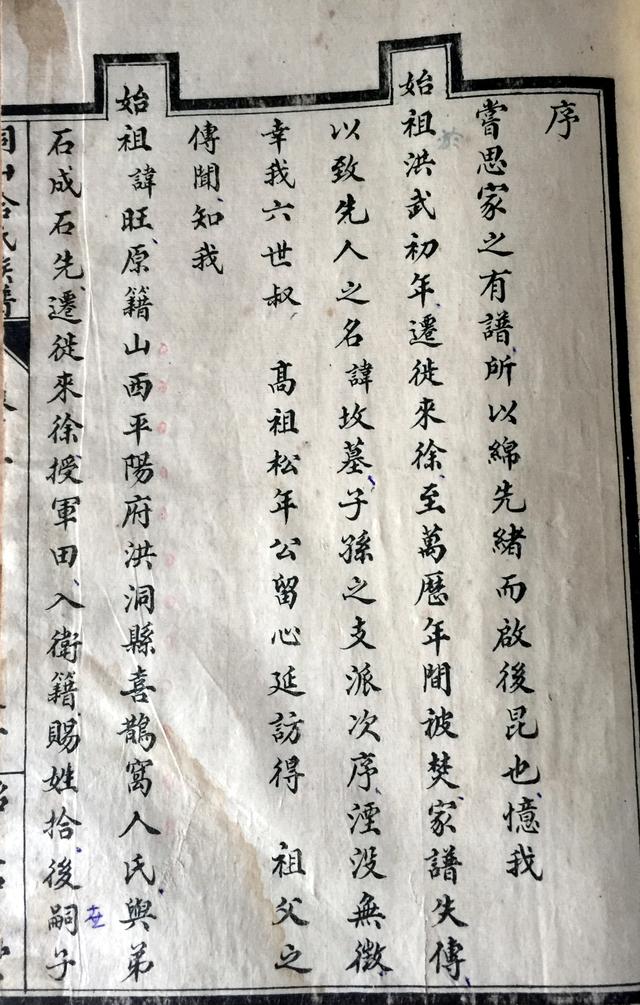 序
嘗思家之有譜所以綿先緒而啟後昆也憶我
始祖洪武初年遷徙來徐至萬歷年間被焚家譜失傳
於
以致先人之名諱坟墓子孫之支派次序湮没無徵
幸我六世叔 高祖松年公留心延訪得 祖父之
傳聞知我
始祖諱旺原籍山西平陽府洪洞縣喜鵲窩人氏與弟
石成石先遷徙來徐授軍田入衛籍賜姓拾後嗣子
在
氏族譜